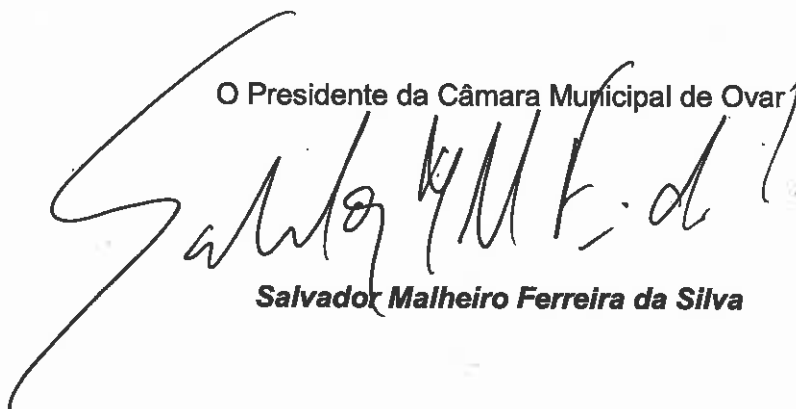 O Presidente da Câmara Municipal de Ovar
Salvador Malheiro Ferreira da Silva